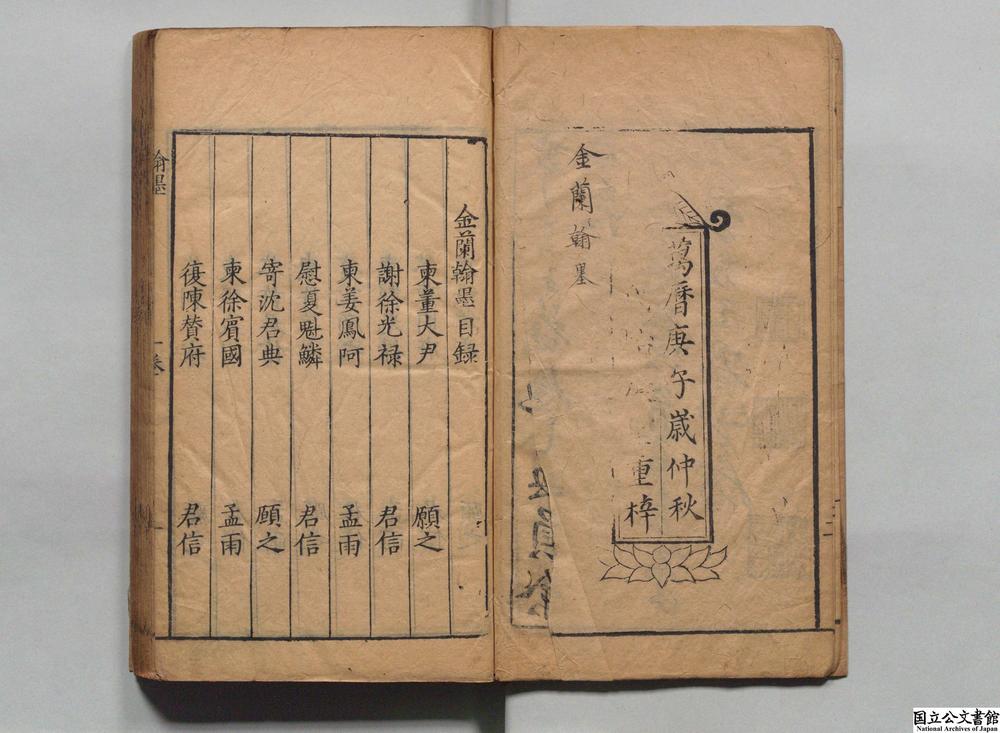 萬曆庚午歲仲秋
重梓
金蘭翰墨
金蘭翰墨目録
柬董大尹 願之
謝徐光禄 君信
柬姜鳳阿 孟雨
慰夏魁鱗 君信
寄沈君典 願之
柬徐賓國 孟雨
復陳賛府 君信
翰墨
一卷
国立公文書館
National Archives of Japan